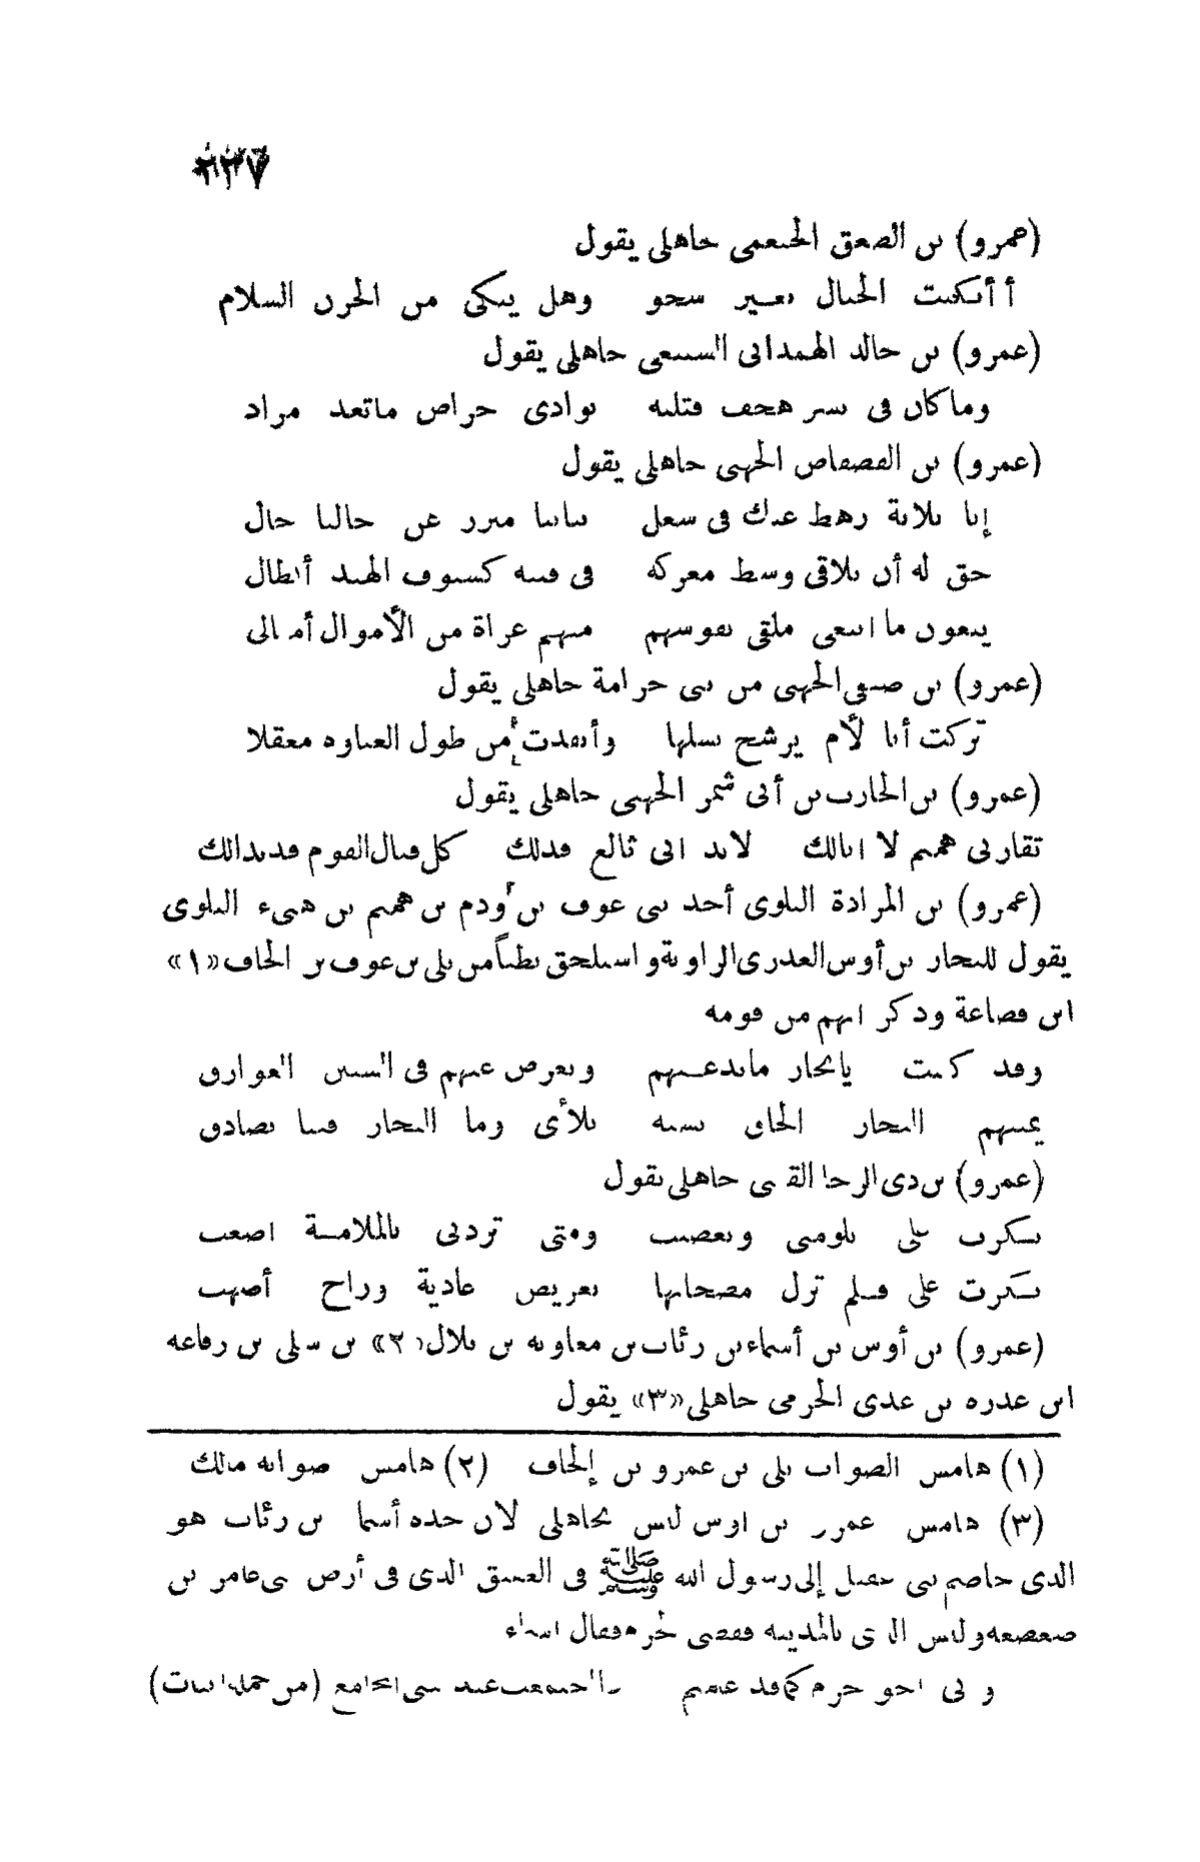 ٢٣٧
(عمرو) بن الصعق الخثعمى جاهلى يقول
أأبكيت الجبال بغير شجو وهل يبكى من الحزن السلام
(عمرو) بن خالد الهمدانى السبيعى جاهلى يقول
وما كان فى قتلته بوادى مراد
(عمرو) بن القصقاص الجهنى جاهلى يقول
إنا ثلاثة رهط عدك فى
حق له أن يلاقى وسط معركة فى فتية كسيوف الهند أبطال
يبغون ما ابتغى ملقى نفوسهم منهم عراة من الأموال أمثالى
(عمرو) بن الجهنى من بنى حرامة جاهلى يقول
تركت أبا لأم يرشح نسلها وأبعدت من طول الغباوة معقلا
(عمرو) بن الحارث بن أبى شمر الجهنى جاهلى يقول
تقاربى هميم لا ابالك لابد انى تابع فذلك كل فبال القوم قد بدالك
(عمرو) بن المرادة البلوى أحد بنى عوف بن ودم بن هميم بن هنىء البلوى
يقول للنخار بن أوس العذرى الراوية واستلحق بطناً من بلى بن عوف بن الحاف «١»
ابن قضاعة وذكر انهم من قومه
وقد كنت يانخار ماتدعيهم وتعرض عنهم فى السنين العوارق
يمنيهم النخار الحاق نسبه بلأى وما النخار فينا بصادق
(عمرو) بن ذى الرحا القينى جاهلى يقول
بكرت على تلومنى وتعصب ومتى تردنى بالملامة اصعب
بكرت على فلم تزل مصحابها بعريض عادية وراح أصهب
(عمرو) بن أوس بن أسماء بن رئاب بن معاوية بن بلال «٢» بن سلى بن رفاعة
ابن عذرة بن عدى الجرمى جاهلى «٣» يقول
(١) هامش الصواب بلى بن عمرو بن إلحاف (٢) هامش صوابه مالك
(٣) هامش عمرو بن اوس ليس بجاهلى لان جده أسماء بن رئاب هو
الذى خاصم بنى عقيل إلى رسول الله ﷺ فى العقيق الذى فى أرض بنى عامر بن
صعصعة وليس الذى بالمدينة فقضى لجرم فقال اسماء
وانى اخو جرم كما قد علمتم اذا اجتمعت عند النبى المجامع (من ابيات)